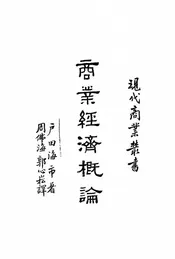 現代商業叢書
商業經濟概論
戶田海市著
周佛海 郭心崧譯